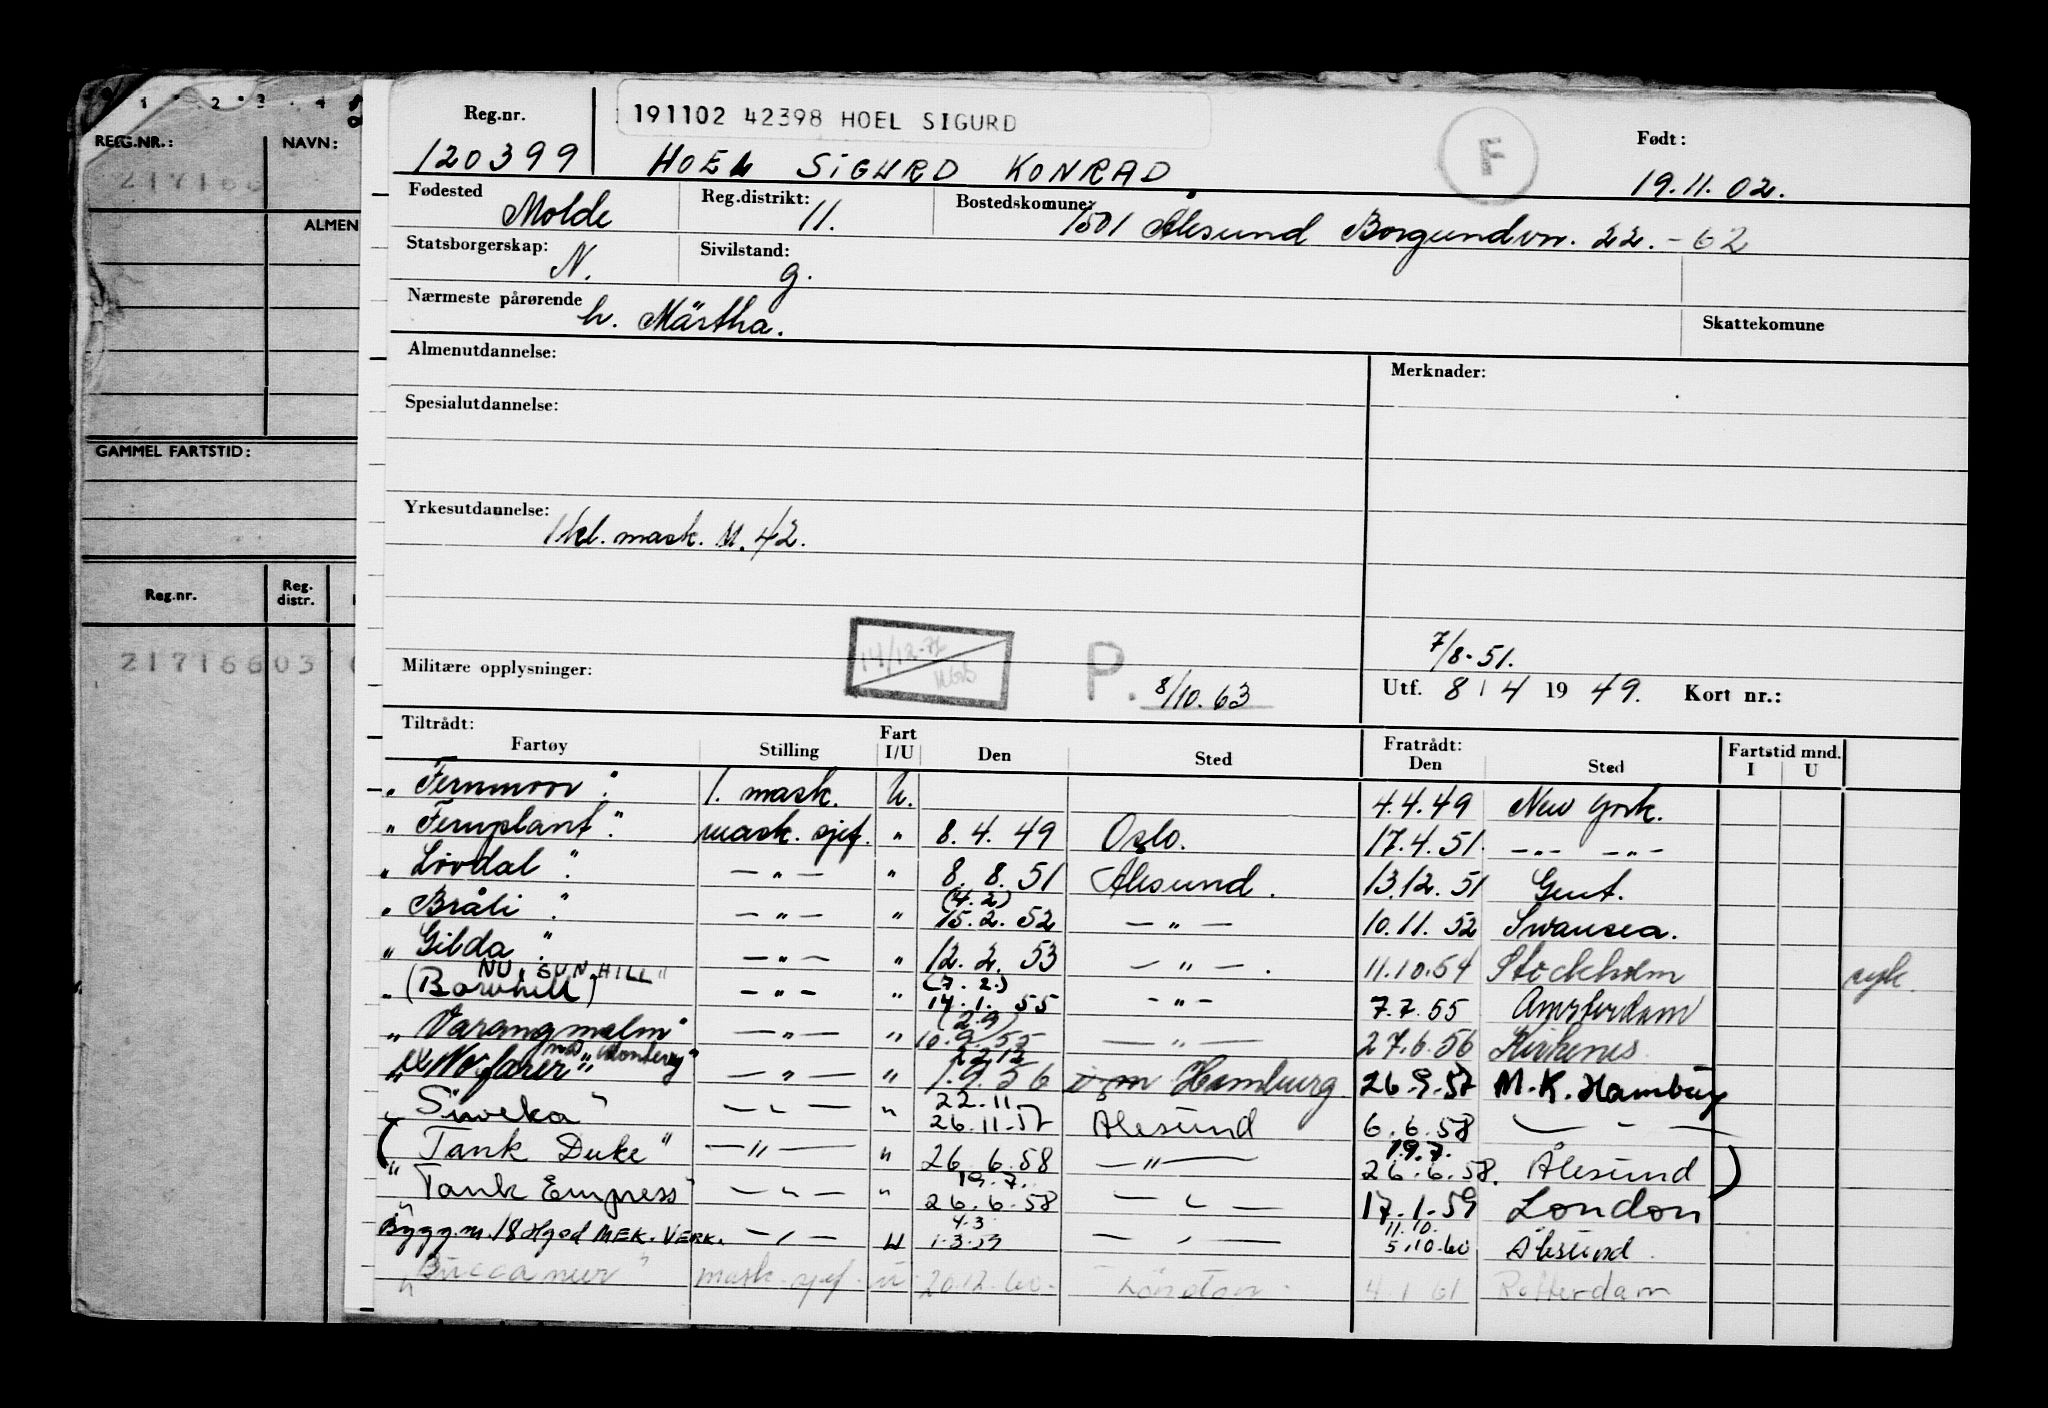 1 2 3 4
REG.NR.: NAVN:
217166
ALMEN
GAMMEL FARTSTID:
Reg.nr. Reg. distr.
21716603
Reg.nr. 191102 42398 HOEL SIGURD F Født:
120399 HOEL SIGURD KONRAD 19.11.02.
Fødested Molde Reg.distrikt: 11. Bostedskomune: 1501 Ålesund Borgundvn. 22. - 62
Statsborgerskap: N. Sivilstand: g.
Nærmeste pårørende h. Märtha. Skattekomune
Almenutdannelse: Merknader:
Spesialutdannelse:
Yrkesutdannelse: 1 kl. mask. M. 42.
7/8-51.
Militære opplysninger: 14/12-72 P. 8/10.63 Utf. 8/4 1949. Kort nr.:
Tiltrådt: Fartøy Stilling Fart I/U Den Sted Fratrådt: Den Sted Fartstid mnd. I U
"Fernmoor" 1. mask. U. 4.4.49 New York.
"Fernplant" mask. sjef. " 8.4.49 Oslo. 17.4.51. -"- -"-
"Lovdal" -"- " 8.8.51 Ålesund. 13.12.51 Gent.
"Bråli" -"- " (4.2) 15.2.52 -"- 10.11.52 Swansea.
"Gilda" -"- " 12.2.53 -"-. 11.10.54 Stockholm syk.
NU "SUNHILL"
"(Barnhill) -"- " (7.2.) 14.1.55 -"- 7.7.55 Amsterdam
"Varangmalm" -"- " (2.9) 10.9.55 -"- 27.6.56 Kirkenes
ex "Wefarer" -"- " 22.12 1.9.56 Hamburg 26.9.57 M.K. Hamburg
"Siveka" -"- " 22.11 26.11.57 Ålesund 6.6.58 - - -
("Tank Duke" -"- " 26.6.58 -"- 19.7. 26.6.58. Ålesund)
"Tank Empress" -"- " 19.7. 26.6.58 -"- 17.1.59 London
Byggn. 18 Hjød MEK. VERK. -"- U 4.3 1.3.59 -"- 11.10. 5.10.60 Ålesund.
"Buccaneer" mask. sjef. U 20.12.60. 4.1.61 Rotterdam